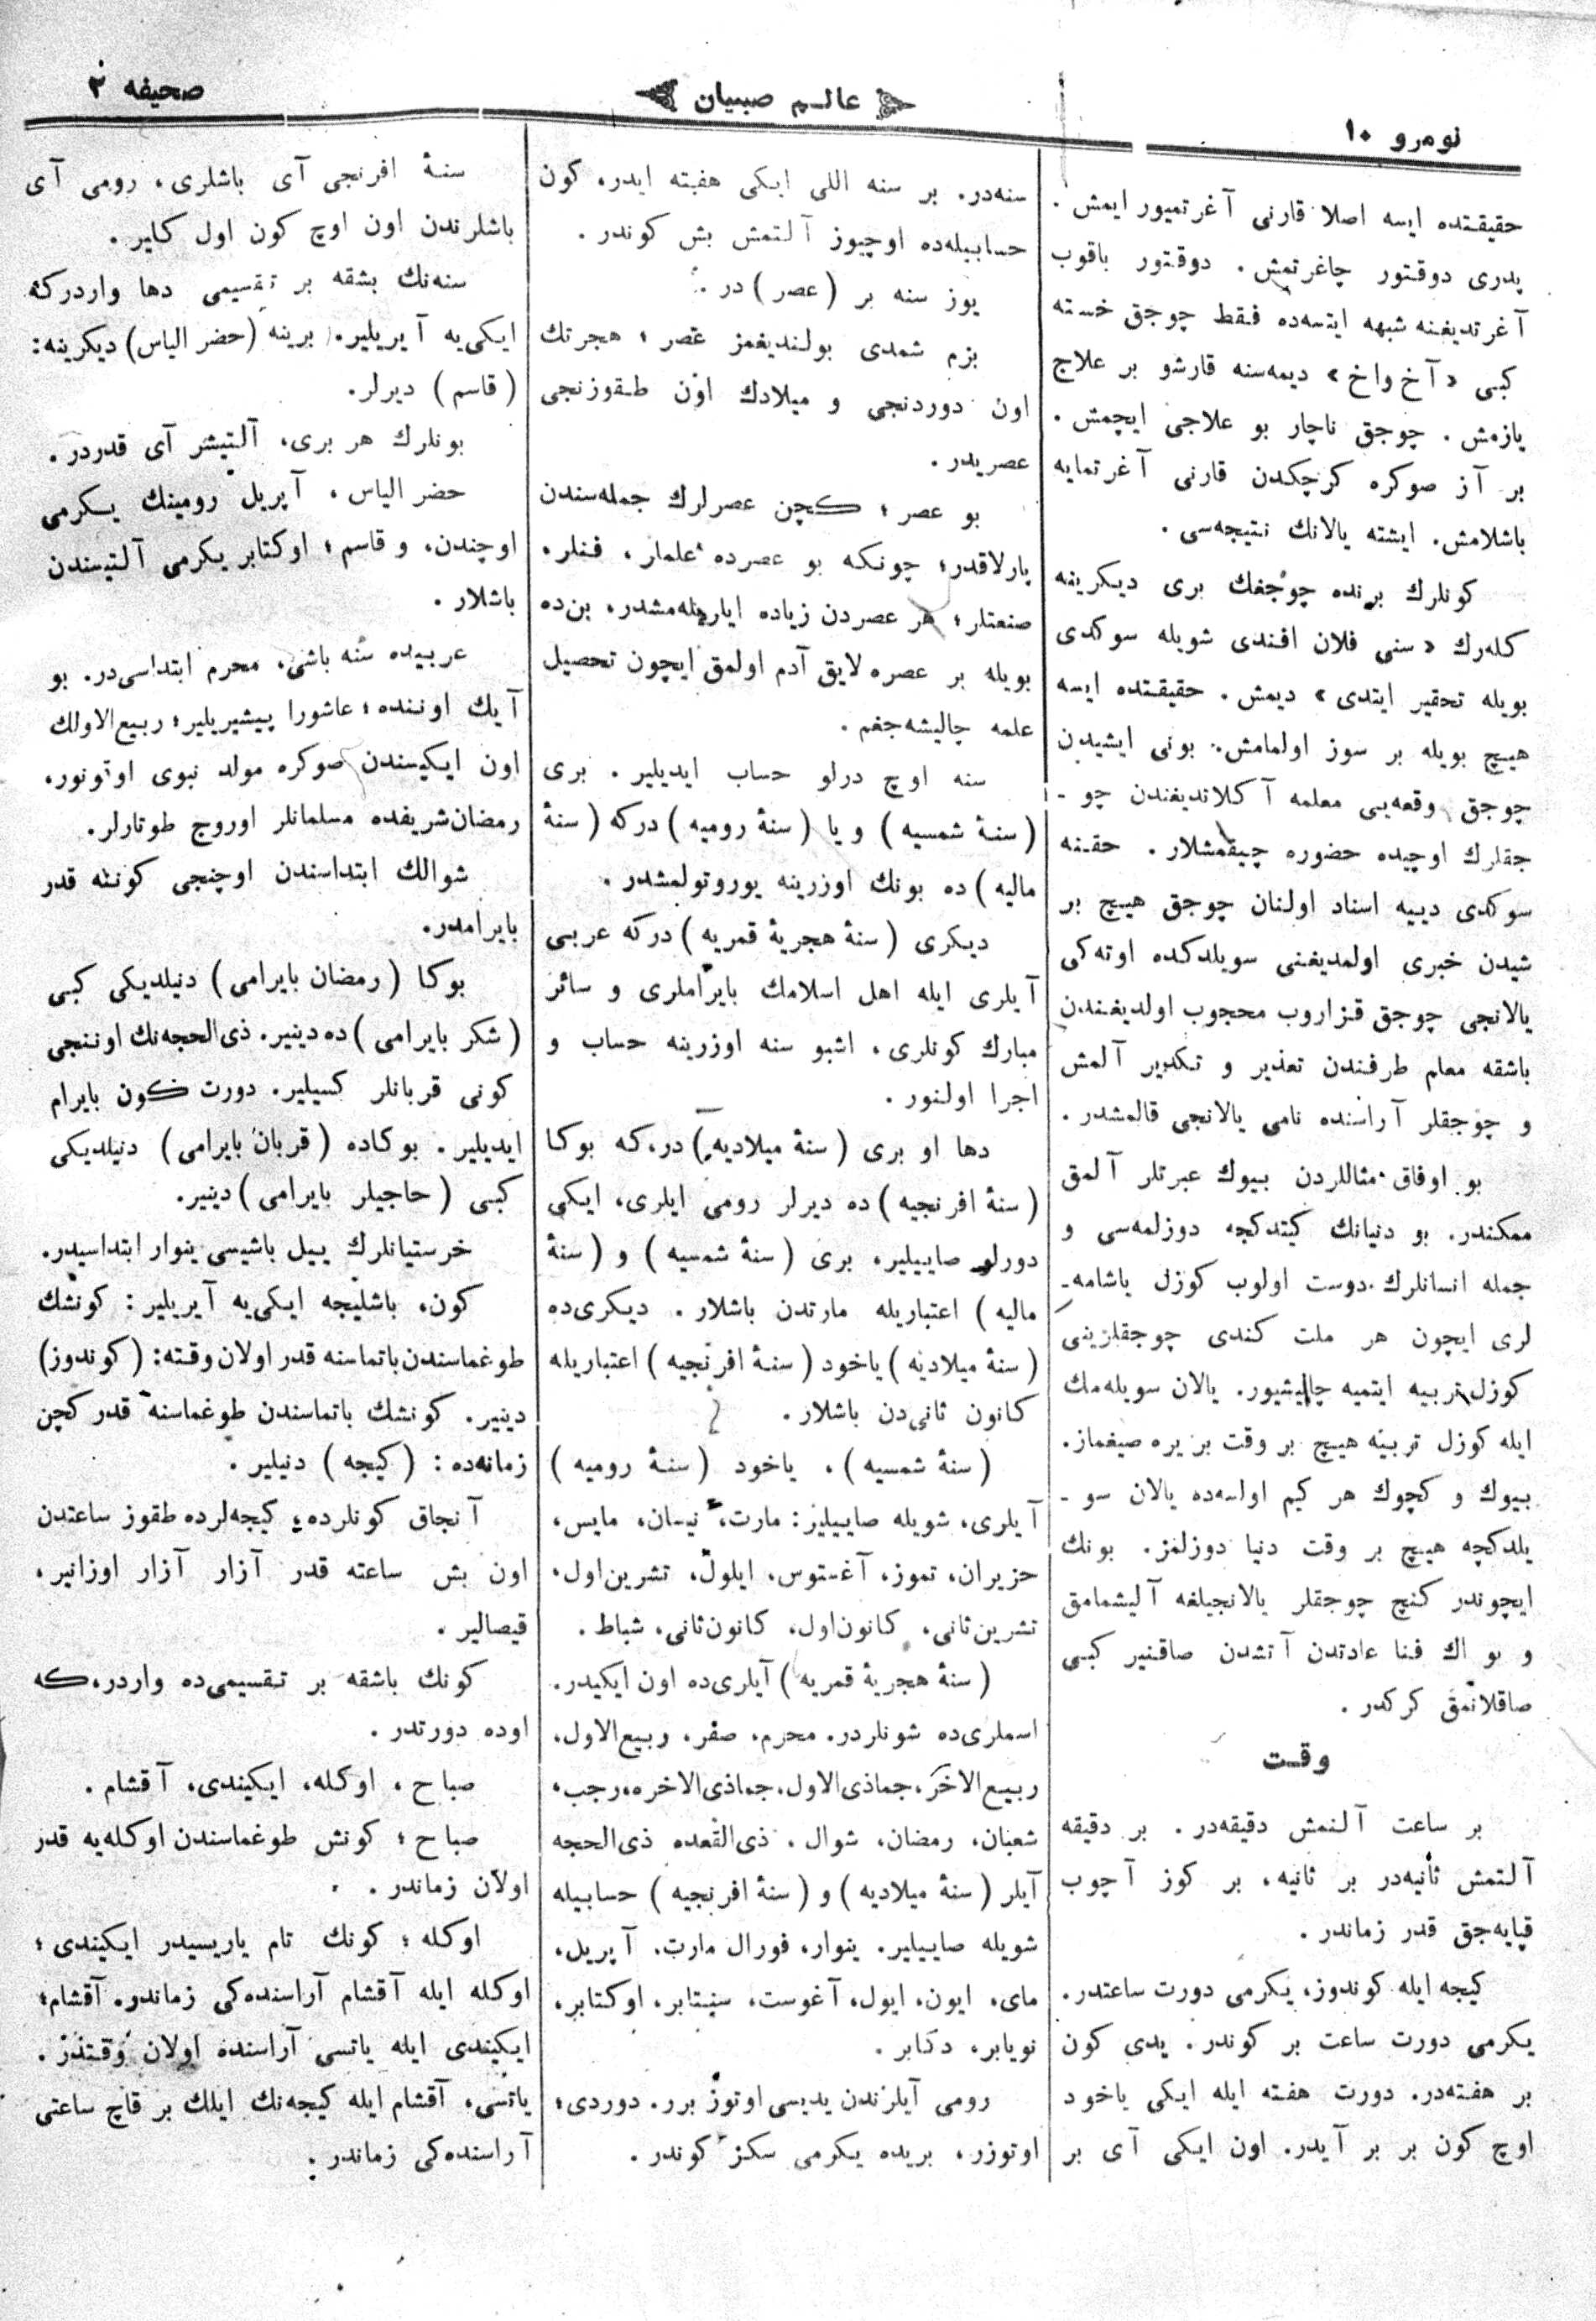 نومرو ١٠
عالم صبیان
صحیفه ٢
حقیقتده ایسه اصلا قارنی آغرتمیور ایمش .
پدری دوقتور چاغرتمش . دوقتور باقوب
آغرتدیغنه شبهه ایتسه‌ده فقط چوجق خسته
کبی « آخ واخ » دیمه‌سنه قارشو بر علاج
یازمش . چوجق ناچار بو علاجی ایچمش .
بر آز صوکره کرچکدن قارنی آغرتمایه
باشلامش. ایشته یالانك نتیجه‌سی .
کونلرك برنده چوجغك بری دیکرینه
کله‌رك « سنی فلان افندی شویله سوکدی
بویله تحقیر ایتدی » دیمش . حقیقتده ایسه
هیچ بویله بر سوز اولمامش. بونی ایشیدن
چوجق وقعه‌یی معلمه آکلاتدیغندن چو -
جقلرك اوچیده حضوره چیقمشلار . حقنه
سوکدی دییه اسناد اولنان چوجق هیچ بر
شیدن خبری اولمدیغنی سویلدکده اوته‌کی
یالانجی چوجق قزاروب محجوب اولدیغندن
باشقه معلم طرفندن تعذیر و تکدیر آلمش
و چوجقلر آراسنده نامی یالانجی قالمشدر .
بو اوفاق مثاللردن بیوك عبرتلر آلمق
ممکندر. بو دنیانك کیتدکجه دوزلمه‌سی و
جمله انسانلرك دوست اولوب کوزل یاشامه-
لری ایچون هر ملت کندی چوجقلرینی
کوزل تربیه ایتمیه چالیشیور. یالان سویله‌مك
ایله کوزل تربیه هیچ بر وقت بر یره صیغماز.
بیوك و کچوك هر کیم اولسه‌ده یالان سو -
یلدکچه هیچ بر وقت دنیا دوزلمز. بونك
ایچوندر کنج چوجقلر یالانجیلغه آلیشمامق
و بو اك فنا عادتدن آتشدن صاقنیر کبی
صاقلانمق کرکدر .
وقت
بر ساعت آلتمش دقیقه‌در . بر دقیقه
آلتمش ثانیه‌در بر ثانیه، بر کوز آچوب
قپایه‌جق قدر زماندر .
کیجه ایله کوندوز، یکرمی دورت ساعتدر.
یکرمی دورت ساعت بر کوندر. یدی کون
بر هفته‌در. دورت هفته ایله ایکی یاخود
اوچ کون بر بر آیدر. اون ایکی آی بر
سنه‌در. بر سنه اللی ایکی هفته ایدر، کون
حسابیله‌ده اوچیوز آلتمش بش کوندر .
یوز سنه بر ( عصر ) در .
بزم شمدی بولندیغمز عصر ؛ هجرتك
اون دوردنجی و میلادك اون طقوزنجی
عصریدر .
بو عصر ؛ کچن عصرلرك جمله‌سندن
پارلاقدر؛ چونکه بو عصرده علملر ، فنلر،
صنعتلر؛ هر عصردن زیاده ایلریله‌مشدر، بن‌ده
بویله بر عصره لایق آدم اولمق ایچون تحصیل
علمه چالیشه‌جغم .
سنه اوچ درلو حساب ایدیلیر . بری
( سنهٔ شمسیه ) ویا ( سنهٔ رومیه ) درکه ( سنهٔ
مالیه ) ده بونك اوزرینه یوروتولمشدر .
دیکری ( سنهٔ هجریهٔ قمریه ) درکه عربی
آیلری ایله اهل اسلامك بایراملری و سائر
مبارك کونلری، اشبو سنه اوزرینه حساب و
اجرا اولنور .
دها او بری ( سنهٔ میلادیه ) در، که بوکا
( سنهٔ افرنجیه ) ده دیرلر رومی ایلری، ایکی
دورلو صاییلیر، بری ( سنهٔ شمسیه ) و ( سنهٔ
مالیه ) اعتباریله مارتدن باشلار . دیکری‌ده
( سنهٔ میلادیه ) یاخود ( سنهٔ افرنجیه ) اعتباریله
کانون ثانی‌دن باشلار .
( سنهٔ شمسیه ) ، یاخود ( سنهٔ رومیه )
آیلری، شویله صاییلیر: مارت، نیسان، مایس،
حزیران، تموز، آغستوس، ایلول، تشرین‌اول،
تشرین‌ثانی، کانون‌اول، کانون‌ثانی، شباط .
( سنهٔ هجریهٔ قمریه ) آیلری‌ده اون ایکیدر.
اسملری‌ده شونلردر. محرم، صفر، ربیع‌الاول،
ربیع‌الاخر، جماذی‌الاول، جماذی‌الاخره، رجب،
شعبان، رمضان، شوال . ذی‌القعده ذی‌الحجه
آیلر ( سنهٔ میلادیه ) و ( سنهٔ افرنجیه ) حسابیله
شویله صاییلیر. ینوار، فورال مارت. آپریل،
مای، ایون، ایول، آغوست، سپنتابر، اوکتابر،
نویابر، دکابر .
رومی آیلرندن یدیسی اوتوز برر. دوردی؛
اوتوزر، بریده یکرمی سکز کوندر .
سنهٔ افرنجی آی باشلری، رومی آی
باشلرندن اون اوچ کون اول کلیر .
سنه‌نك بشقه بر تقسیمی دها واردرکه
ایکی‌یه آیریلیر. برینه (حضر الیاس) دیکرینه:
( قاسم ) دیرلر.
بونلرك هر بری، آلتیشر آی قدردر .
حضر الیاس ، آپریل رومینك یکرمی
اوچندن، و قاسم ؛ اوکتابر یکرمی آلتیسندن
باشلار .
عربیده سنه باشی، محرم ابتداسی‌در. بو
آیك اوننده ؛ عاشورا پیشیریلیر؛ ربیع‌الاولك
اون ایکیسندن صوکره مولد نبوی اوتونور،
رمضان‌شریفده مسلمانلر اوروج طوتارلر.
شوالك ابتداسندن اوچنجی کوننه قدر
بایرامدر.
بوکا ( رمضان بایرامی ) دنیلدیکی کبی
( شکر بایرامی ) ده دینیر. ذی‌الحجه‌نك اوننجی
کونی قربانلر کسیلیر. دورت کون بایرام
ایدیلیر . بوکاده ( قربان بایرامی ) دنیلدیکی
کبی ( حاجیلر بایرامی ) دینیر.
خرستیانلرك ییل باشیسی ینوار ابتداسیدر.
کون، باشلیجه ایکی‌یه آیریلیر : کونشك
طوغماسندن باتماسنه قدر اولان وقته: ( کوندوز)
دینیر. کونشك باتماسندن طوغماسنه قدر کچن
زمانه‌ده : ( کیجه ) دنیلیر .
آنجاق کونلرده؛ کیجه‌لرده طقوز ساعتدن
اون بش ساعته قدر آزار آزار اوزانیر،
قیصالیر .
کونك باشقه بر تقسیمی‌ده واردر، که
اوده دورتدر .
صباح ، اوکله، ایکیندی، آقشام .
صباح ؛ کونش طوغماسندن اوکله‌یه قدر
اولان زماندر .
اوکله ؛ کونك تام یاریسیدر ایکیندی ؛
اوکله ایله آقشام آراسنده‌کی زماندر. آقشام؛
ایکیندی ایله یاتسی آراسنده اولان وقتدر .
یاتسی، آقشام ایله کیجه‌نك ایلك بر قاچ ساعتی
آراسنده‌کی زماندر .